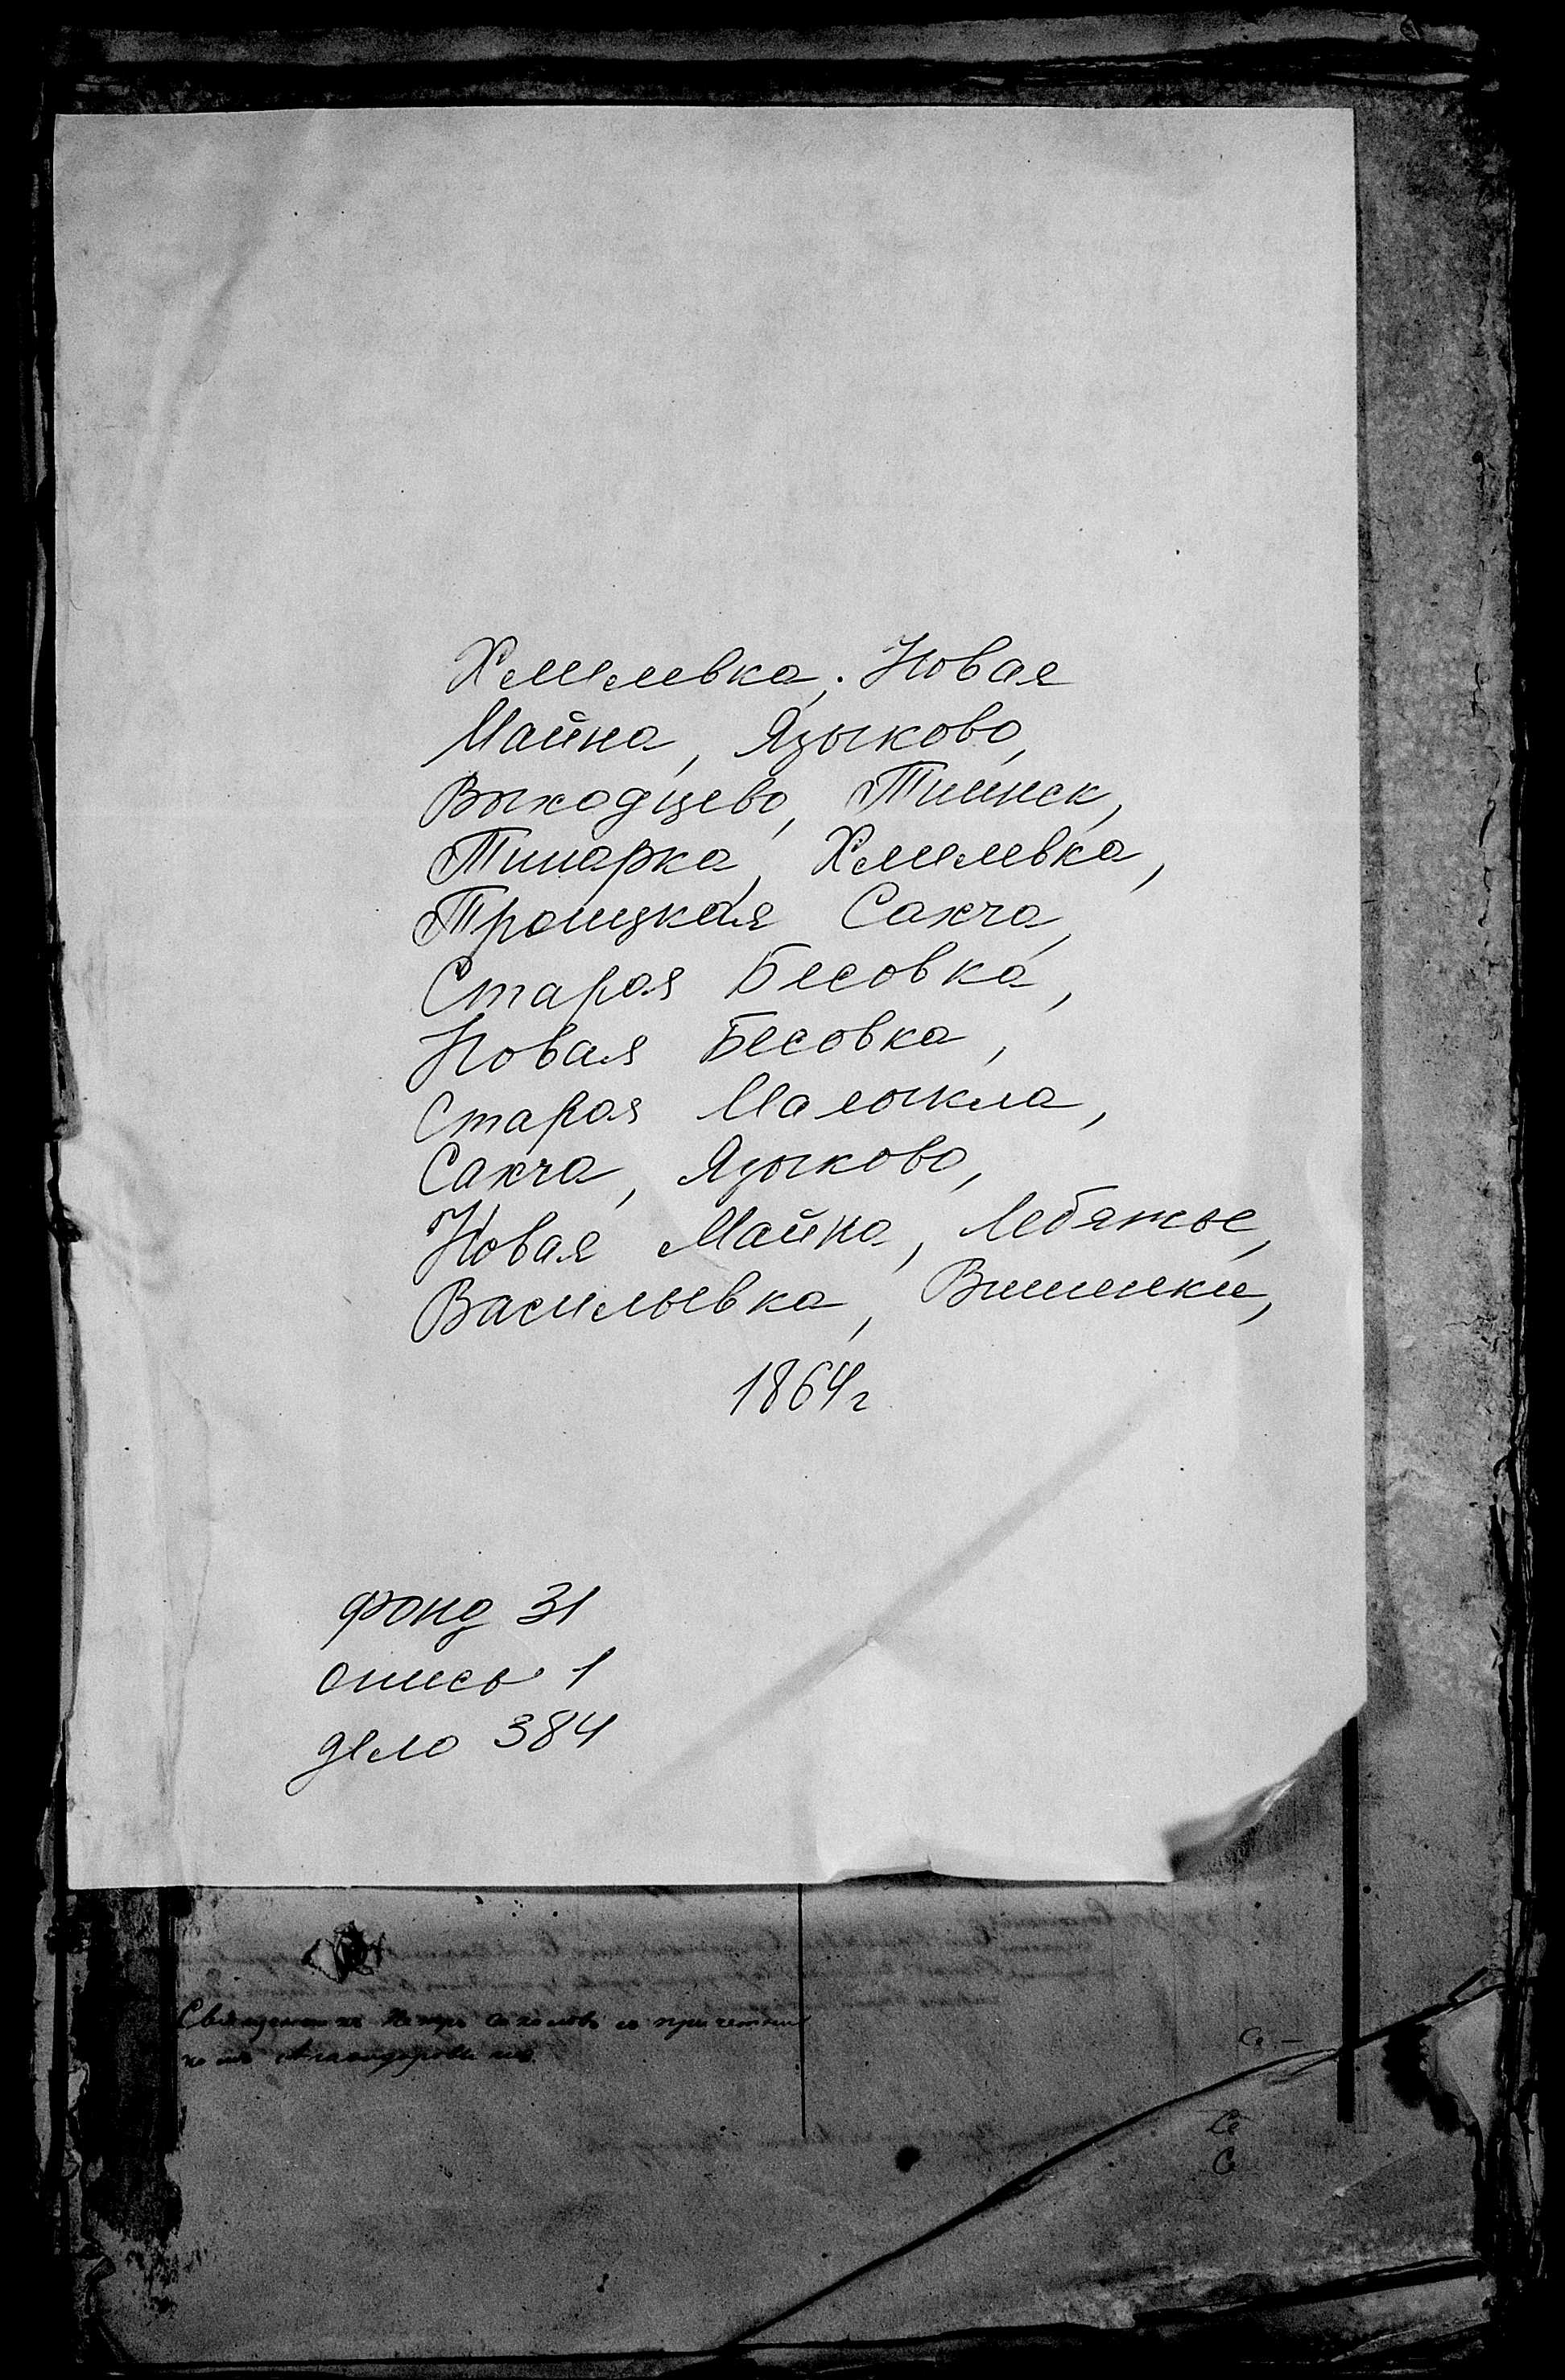 Хмелевка, Новая
Майна, Языково,
Выходцево, Тиинск,
Тинарка, Хмелевка,
Троицкая Сахча,
Старая Бесовка,
Новая Бесовка,
Старая Малыкла,
Сахча, Языково,
Новая Майна, Лебяжье,
Васильевка, Вишенки,
1864г
фонд 31
опись 1
дело 384